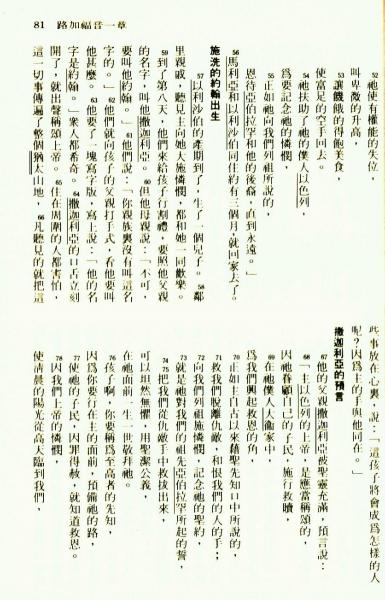 81 路加福音一章
52 祂使有權能的失位，
叫卑微的升高，
53 讓饑餓的得飽美食，
使富足的空手回去。
54 祂扶助了祂的僕人以色列，
為要記念祂的憐憫，
55 正如祂向我們列祖所說的，
恩待亞伯拉罕和他的後裔，直到永遠。」
56 馬利亞和以利沙伯同住約有三個月，就回家去了。
施洗的約翰出生
57 以利沙伯的產期到了，生了一個兒子。58 鄰
里親戚，聽見主向她大施憐憫，都和她一同歡樂。
59 到了第八天，他們來給孩子行割禮，要照他父親
的名字，叫他撒迦利亞。60 但他母親說：「不可，
要叫他約翰。」61 他們說：「你親族裏沒有叫這名
字的。」62 他們就向孩子的父親打手式，看他要叫
他甚麼。63 他要了一塊寫字版，寫上說：「他的名
字是約翰。」眾人都希奇。64 撒迦利亞的口舌立刻
開了，就出聲稱頌上帝。65 住在周圍的人都害怕，
這一切事傳遍了整個猶太山地，66 凡聽見的就把這
些事放在心裏，說：「這孩子將會成為怎樣的人
呢？因為主的手與他同在。」
撒迦利亞的預言
67 他的父親撒迦利亞被聖靈充滿，預言說：
68 「主以色列的上帝，是應當稱頌的，
因祂眷顧自己的子民，施行救贖，
69 在祂僕人大衛家中，
為我們興起救恩的角，
70 正如主自古以來藉聖先知口中所說的，
71 救我們脫離仇敵，和恨我們的人的手；
72 向我們列祖施憐憫，記念祂的聖約，
73 就是祂對我們的祖先亞伯拉罕所起的誓，
74 把我們從仇敵手中救拔出來，
75 可以坦然無懼，用聖潔公義，
在祂面前，一生一世敬拜祂。
76 孩子啊，你要稱為至高者的先知，
因為你要行在主的面前，預備祂的路，
77 使祂的子民，因罪得赦，就知道救恩。
78 因我們上帝的憐憫，
使清晨的陽光從高天臨到我們，